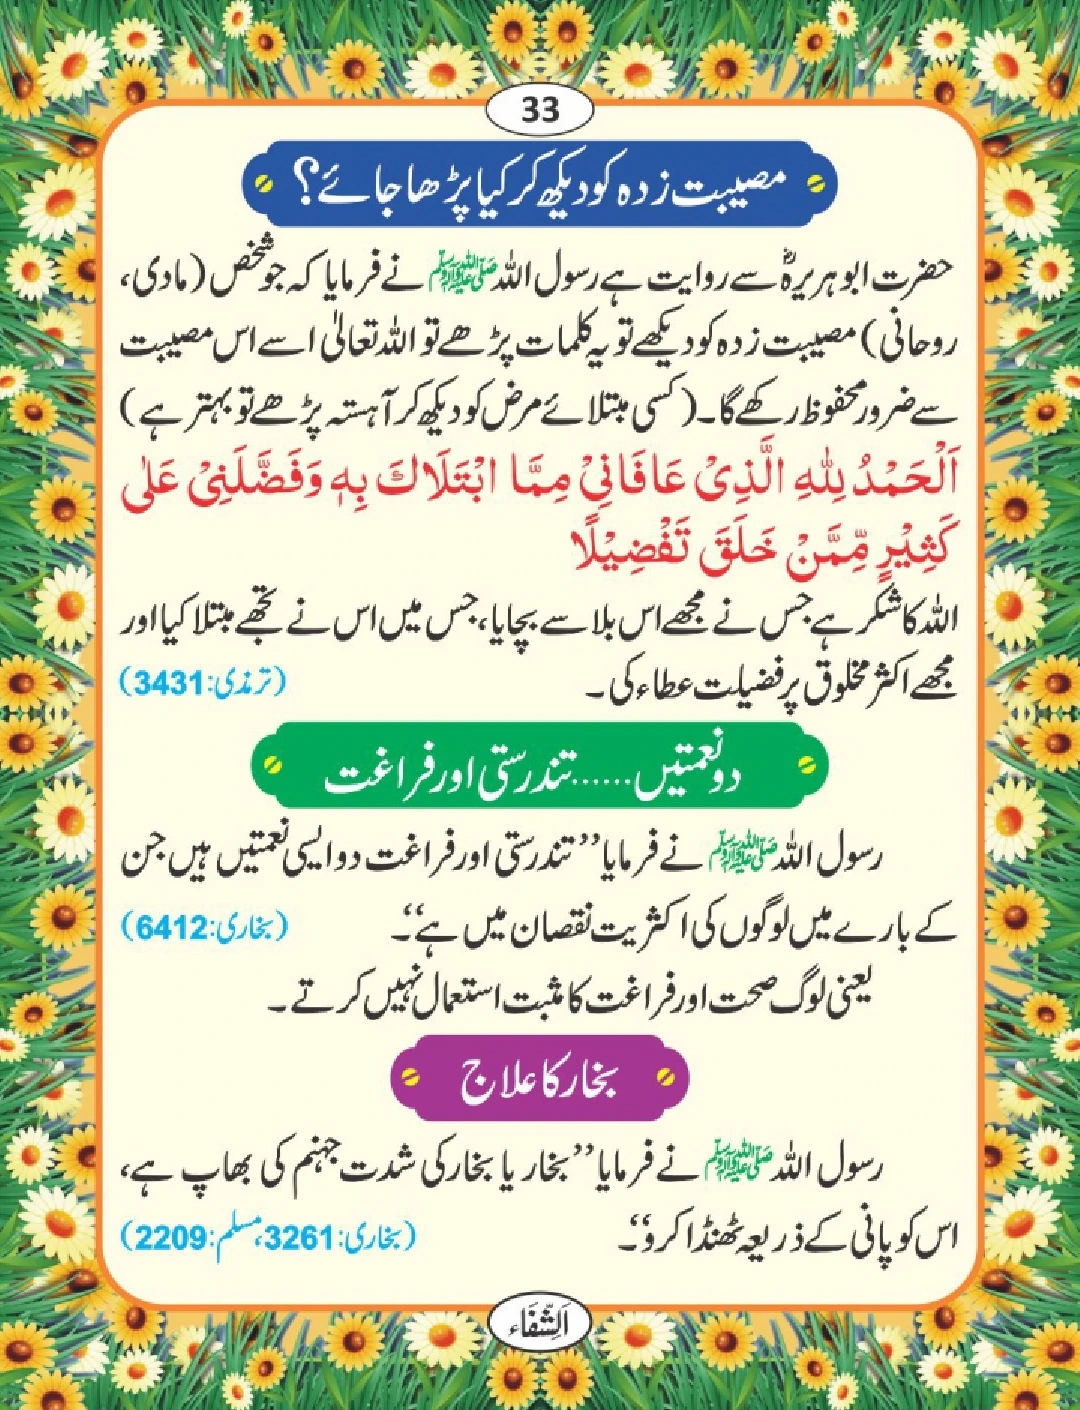 33
مصیبت زدہ کو دیکھ کر کیا پڑھا جائے؟
حضرت ابو ہریرہؓ سے روایت ہے رسول اللہ ﷺ نے فرمایا کہ جو شخص (مادی،
روحانی) مصیبت زدہ کو دیکھے تو یہ کلمات پڑھے تو اللہ تعالیٰ اسے اس مصیبت
سے ضرور محفوظ رکھے گا۔ (کسی مبتلائے مرض کو دیکھ کر آہستہ پڑھے تو بہتر ہے)
اَلْحَمْدُ لِلّٰهِ الَّذِیْ عَافَانِیْ مِمَّا ابْتَلَاكَ بِهٖ وَفَضَّلَنِیْ عَلٰی
كَثِیْرٍ مِّمَّنْ خَلَقَ تَفْضِیْلًا
اللہ کا شکر ہے جس نے مجھے اس بلا سے بچایا، جس میں اس نے تجھے مبتلا کیا اور
مجھے اکثر مخلوق پر فضیلت عطاء کی۔ (ترمذی: 3431)
دو نعمتیں......تندرستی اور فراغت
رسول اللہ ﷺ نے فرمایا ’’تندرستی اور فراغت دو ایسی نعمتیں ہیں جن
کے بارے میں لوگوں کی اکثریت نقصان میں ہے‘‘۔ (بخاری: 6412)
یعنی لوگ صحت اور فراغت کا مثبت استعمال نہیں کرتے۔
بخار کا علاج
رسول اللہ ﷺ نے فرمایا ’’بخار یا بخار کی شدت جہنم کی بھاپ ہے،
اس کو پانی کے ذریعہ ٹھنڈا کرو‘‘۔ (بخاری: 3261، مسلم: 2209)
اَلشِّفَاء